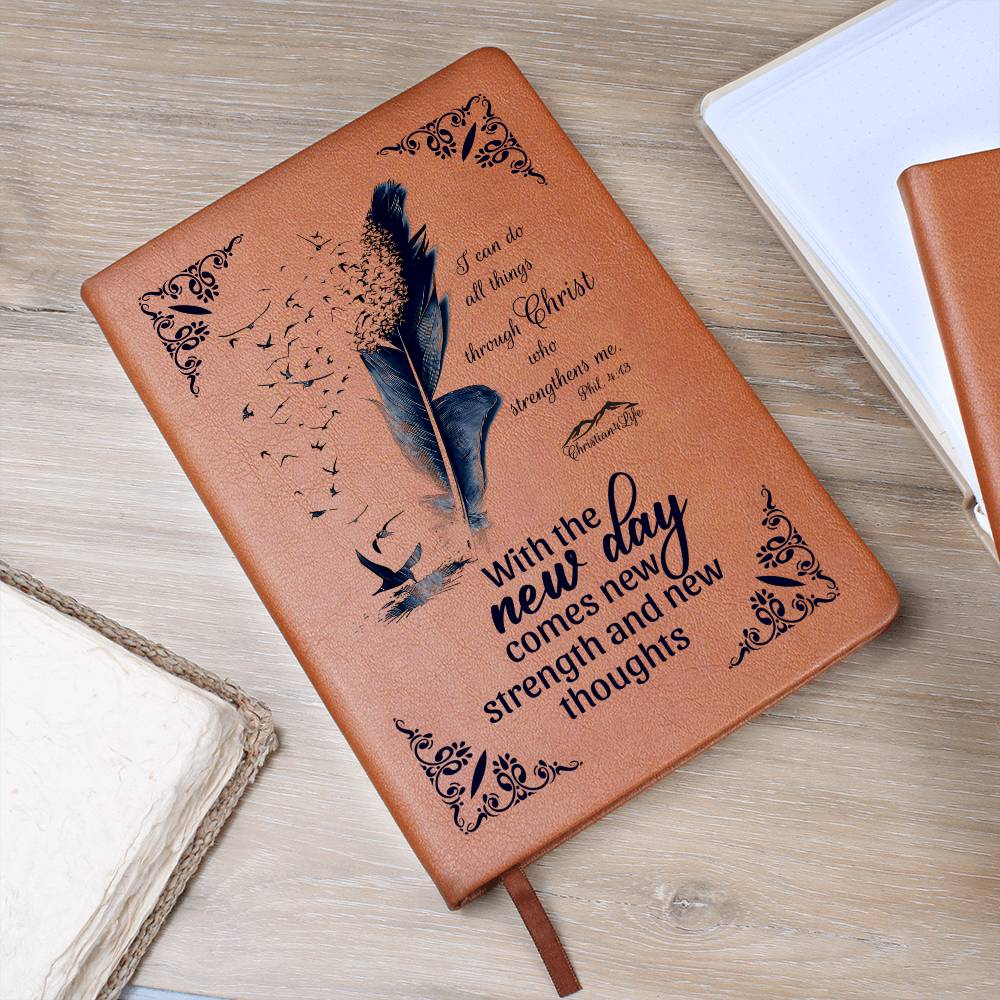 I can do
all things
through Christ
who
strengthens me.
Phil. 4:13
Christian4Life
With the
new day
comes new
strength and new
thoughts